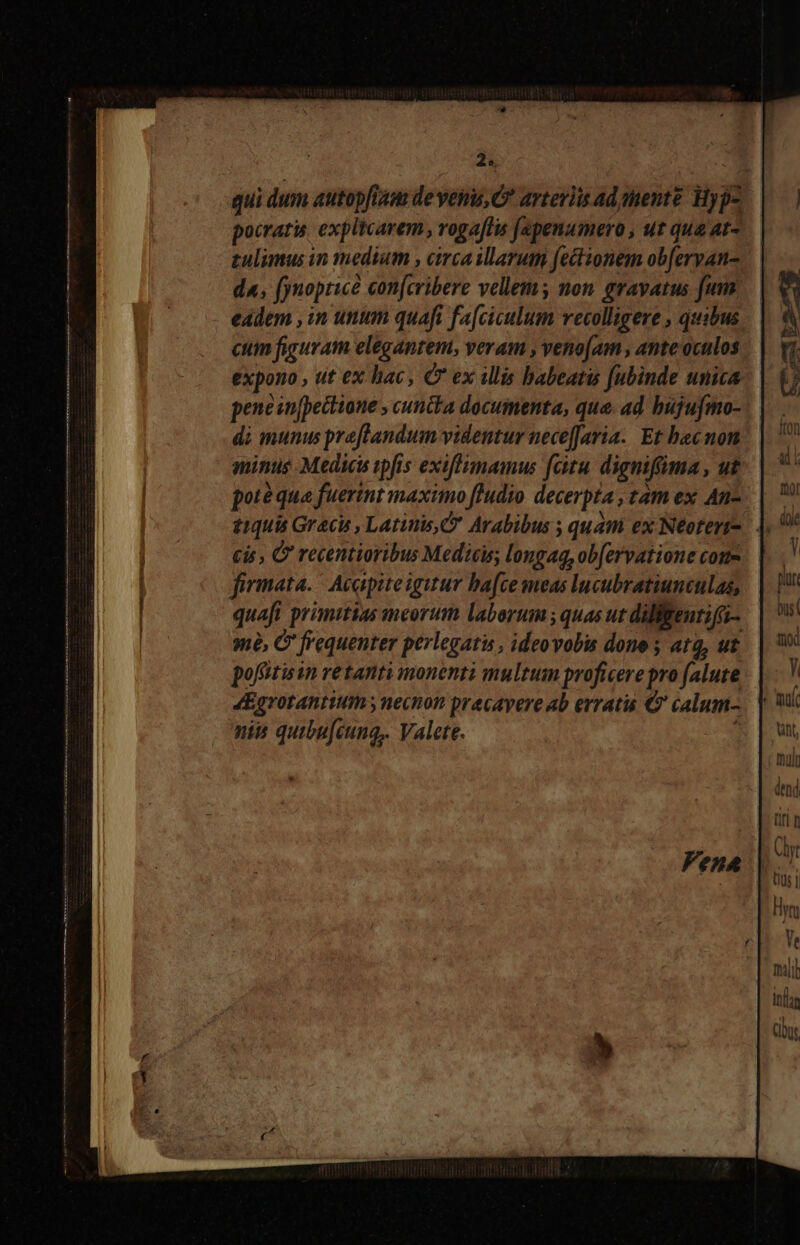 2.
qui dum autopſiam de venis, & arteriis ad mentē Hyp-
pocratis explicarem, rogaſtis ſæpenumero, ut quæ at-
tulimus in medium, circa illarum ſectionem obſervan-
da, ſynopticè conſcribere vellem; non gravatus ſum
eadem, in unum quaſi faſciculum recolligere, quibus
cum figuram elegantem, veram, venoſam, ante oculos
expono, ut ex hac, & ex illis habeatis ſubinde unica
penè inſpectione, cuncta documenta, quæ ad hujuſmo-
di munus præſtandum videntur neceſſaria. Et hæc non
minus Medicis ipſis exiſtimamus ſcitu digniſſima, ut
potè quæ fuerint maximo ſtudio decerpta, tàm ex An-
tiquis Græcis, Latinis, & Arabibus; quàm ex Neoteri-
cis, & recentioribus Medicis; longaq; obſervatione con-
firmata. Accipite igitur haſce meas lucubratiunculas,
quaſi primitias meorum laborum; quas ut diligentiſſi-
mè, & frequenter perlegatis, ideo vobis dono; atq; ut
poſſitis in re tanti monenti multum proficere pro ſalute
Ægrotantium; necnon præcavere ab erratis & calum-
niis quibuſcunq;. Valete.
Vena
iron
ad
mor
dole
V
plure
bus
mod
V
muſc
tunt,
muln
dend
tiri n
Chyr
tius i
Hyru
Ve
malib
inflan
cibus